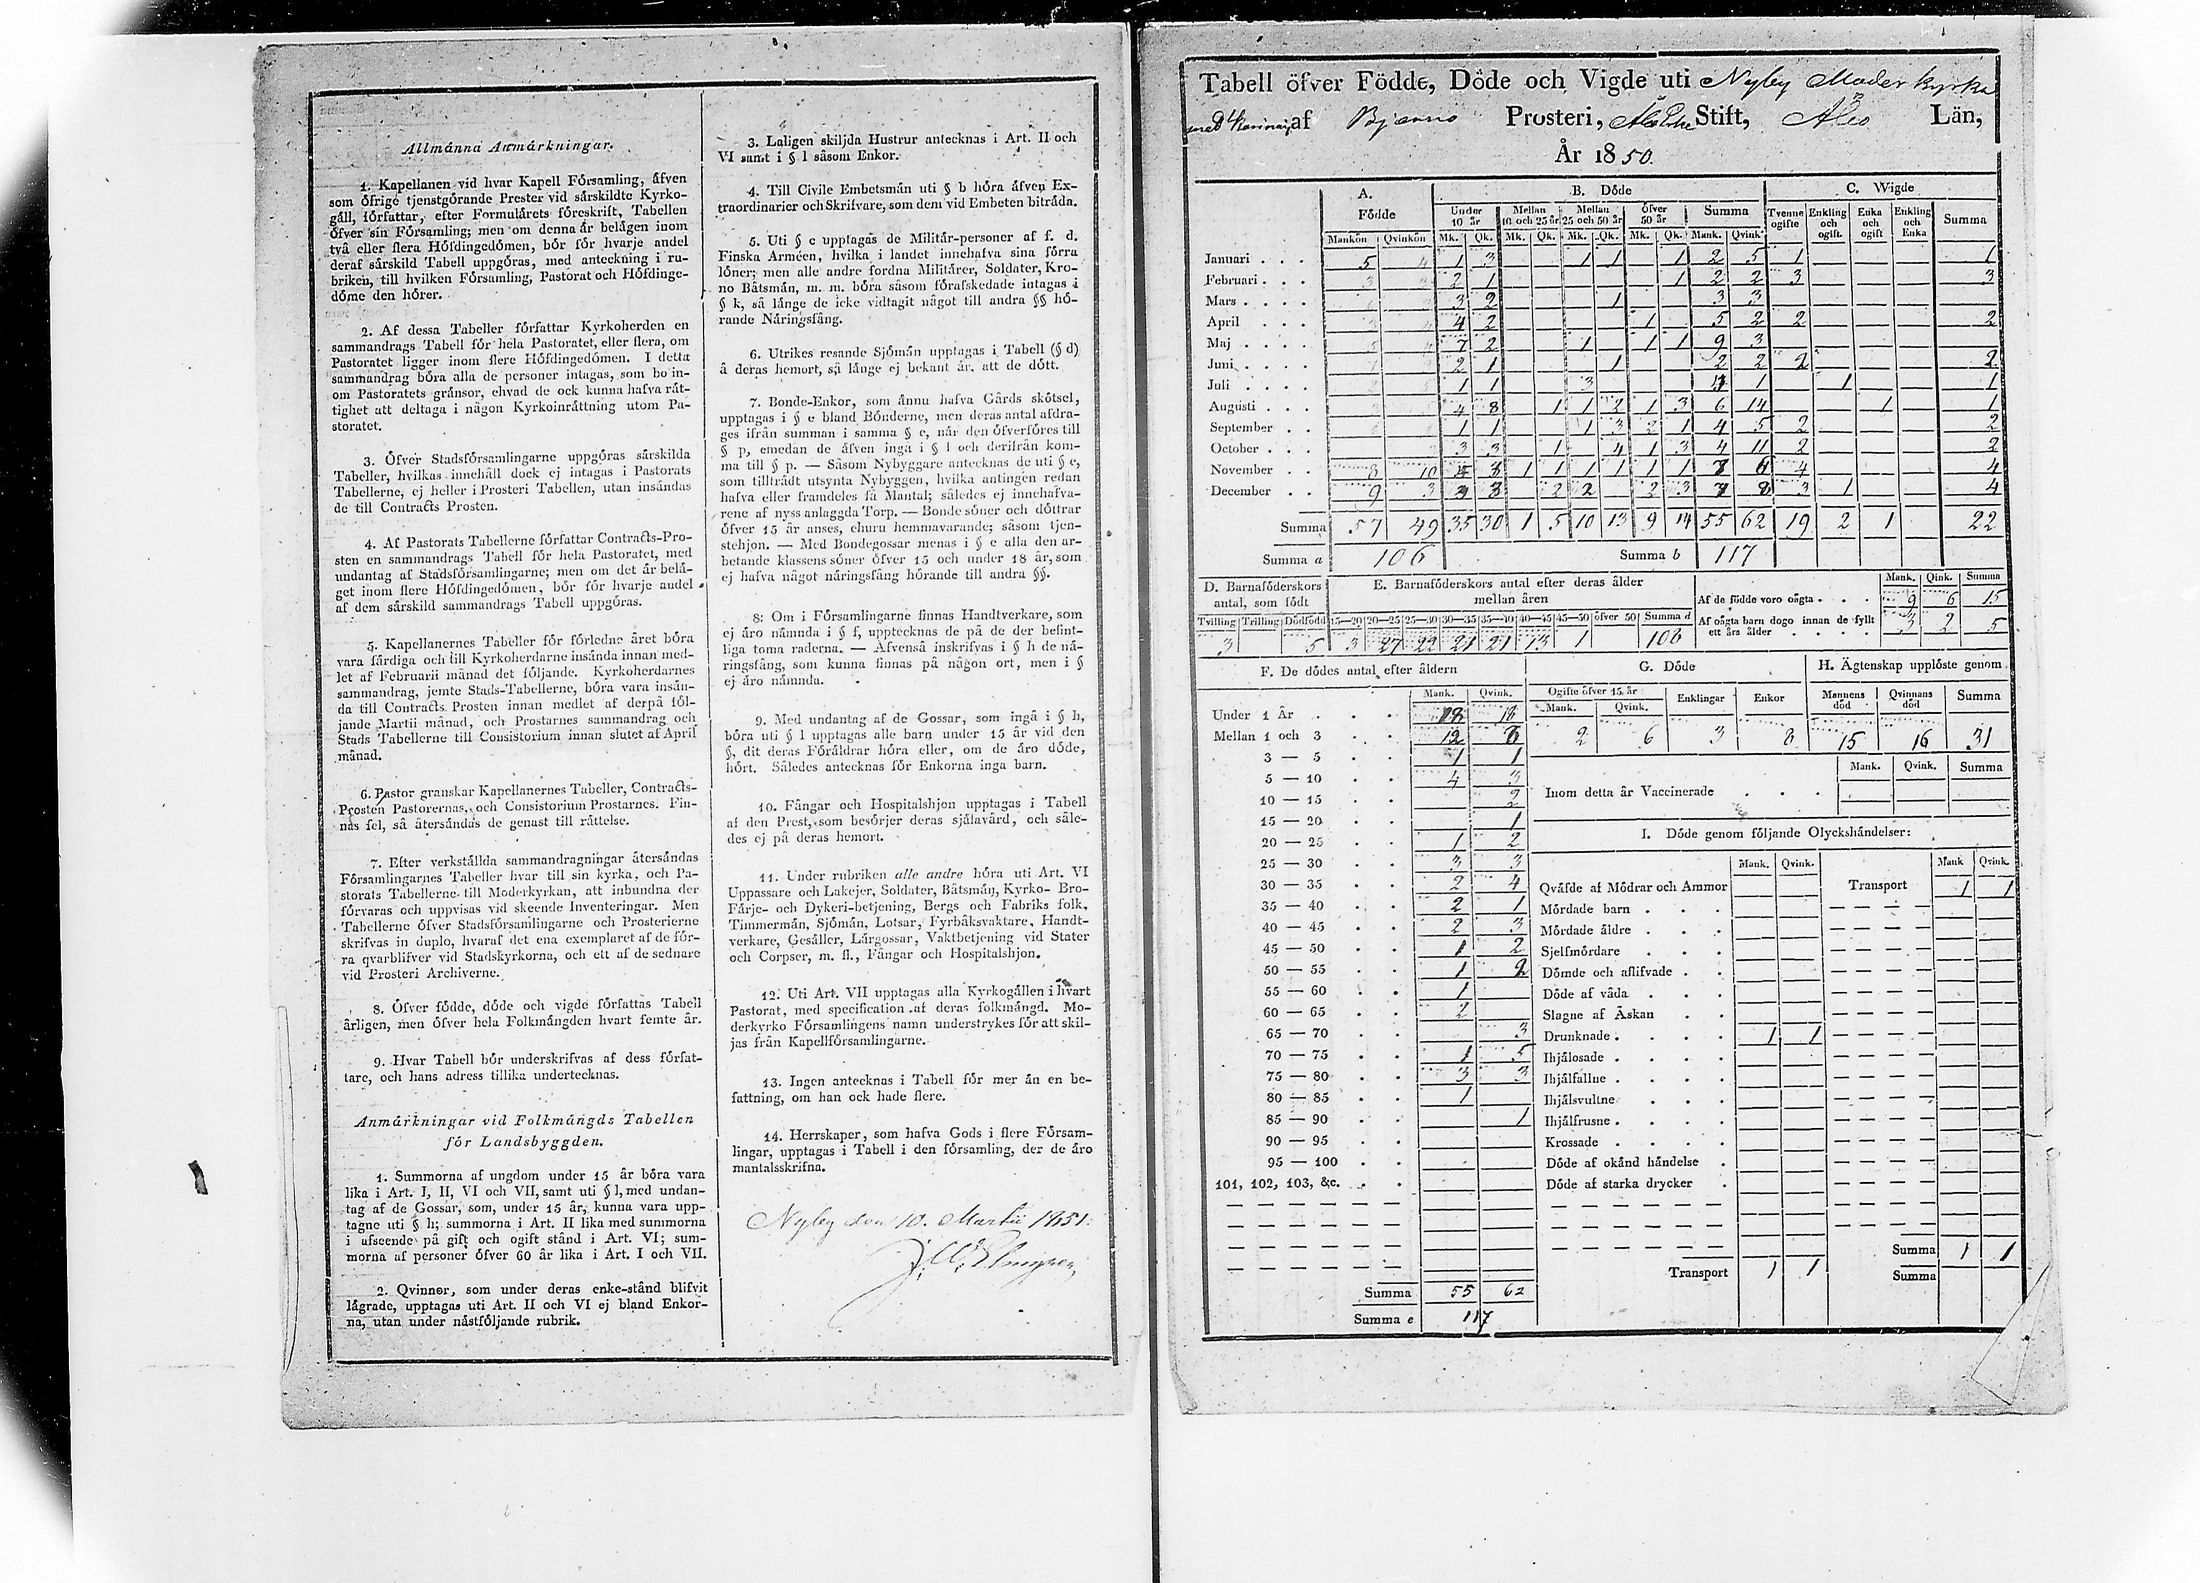 Allmänna Anmärkningar.
1. Kapellanen vid hvar Kapell Församling, äfven
som öfrige tjenstgörande Prester vid särskildte Kyrko-
gäll, författar, efter Formulärets föreskrift, Tabellen
öfver sin Församling; men om denna är belägen inom
två eller flera Höfdingedömen, bör för hvarje andel
deraf särskild Tabell uppgöras, med anteckning i ru-
briken, till hvilken Församling, Pastorat och Höfdinge-
döme den hörer.
2. Af dessa Tabeller författar Kyrkoherden en
sammandrags Tabell för hela Pastoratet, eller flera, om
Pastoratet ligger inom flere Höfdingedömen. I detta
sammandrag böra alla de personer intagas, som bo in-
om Pastoratets gränsor, ehvad de ock kunna hafva rät-
tighet att deltaga i någon Kyrkoinrättning utom Pa-
storatet.
3. Öfver Stadsförsamlingarne uppgöras särskilda
Tabeller, hvilkas innehåll dock ej intagas i Pastorats
Tabellerne, ej heller i Prosteri Tabellen, utan insändas
de till Contracts Prosten.
4. Af Pastorats Tabellerne författar Contracts-Pro-
sten en sammandrags Tabell för hela Pastoratet, med
undantag af Stadsförsamlingarne; men om det är belä-
get inom flere Höfdingedömen, bör för hvarje andel
af dem särskild sammandrags Tabell uppgöras.
5. Kapellanernes Tabeller för förledne året böra
vara färdiga och till Kyrkoherdarne insända innan med-
let af Februarii månad det följande. Kyrkoherdarnes
sammandrag, jemte Stads-Tabellerne, böra vara insän-
da till Contracts Prosten innan medlet af derpå föl-
jande Martii månad, och Prostarnes sammandrag och
Stads Tabellerne till Consistorium innan slutet af April
månad.
6. Pastor granskar Kapellanernes Tabeller, Contracts-
Prosten Pastorernas, och Consistorium Prostarnes. Fin-
nas fel, så återsändas de genast till rättelse.
7. Efter verkställda sammandragningar återsändas
Församlingarnes Tabeller hvar till sin kyrka, och Pa-
storats Tabellerne till Moderkyrkan, att inbundna der
förvaras och uppvisas vid skeende Inventeringar. Men
Tabellerne öfver Stadsförsamlingarne och Prosterierne
skrifvas in duplo, hvaraf det ena exemplaret af de för-
ra qvarblifver vid Stadskyrkorna, och ett af de sednare
vid Prosteri Archiverne.
8. Öfver födde, döde och vigde författas Tabell
årligen, men öfver hela Folkmängden hvart femte år.
9. Hvar Tabell bör underskrifvas af dess förfat-
tare, och hans adress tillika undertecknas.
Anmärkningar vid Folkmängds Tabellen
för Landsbyggden.
1. Summorna af ungdom under 15 år böra vara
lika i Art. I, II, VI och VII, samt uti § l, med undan-
tag af de Gossar, som, under 15 år, kunna vara upp-
tagne uti § h; summorna i Art. II lika med summorna
i afseende på gift och ogift stånd i Art. VI; sum-
morna af personer öfver 60 år lika i Art. I och VII.
2. Qvinner, som under deras enke-stånd blifvit
lägrade, upptagas uti Art. II och VI ej bland Enkor-
na, utan under nästföljande rubrik.
3. Laligen skiljda Hustrur antecknas i Art. II och
VI samt i § l såsom Enkor.
4. Till Civile Embetsmän uti § b höra äfven Ex-
traordinarier och Skrifvare, som dem vid Embeten biträda.
5. Uti § c upptagas de Militär-personer af f. d.
Finska Arméen, hvilka i landet innehafva sina förra
löner; men alle andre fordna Militärer, Soldater, Kro-
no Båtsmän, m. m. böra såsom förafskedade intagas i
§ k, så länge de icke vidtagit något till andra §§ hö-
rande Näringsfång.
6. Utrikes resande Sjömän upptagas i Tabell (§ d)
å deras hemort, så länge ej bekant är, att de dött.
7. Bonde-Enkor, som ännu hafva Gårds skötsel,
upptagas i § e bland Bönderne, men deras antal afdra-
ges ifrån summan i samma § e, när den öfverföres till
§ p, emedan de äfven ingå i § l och derifrån kom-
ma till § p. — Såsom Nybyggare antecknas de uti § e,
som tillträdt utsynta Nybyggen, hvilka antingen redan
hafva eller framdeles få Mantal; således ej innehafva-
rene af nyss anlaggda Torp. — Bonde söner och döttrar
öfver 15 år anses, ehuru hemmavarande; såsom tjen-
stehjon. — Med Bondegossar menas i § e alla den ar-
betande klassens söner öfver 15 och under 18 år, som
ej hafva något näringsfång hörande till andra §§.
8: Om i Församlingarne finnas Handtverkare, som
ej äro nämnda i § f, upptecknas de på de der befint-
liga toma raderna. — Äfvenså inskrifvas i § h de nä-
ringsfång, som kunna finnas på någon ort, men i §
ej äro nämnda.
9. Med undantag af de Gossar, som ingå i § h,
böra uti § l upptagas alle barn under 15 år vid den
§, dit deras Föräldrar höra eller, om de äro döde,
hört. Således antecknas för Enkorna inga barn.
10. Fångar och Hospitalshjon upptagas i Tabell
af den Prest, som besörjer deras själavård, och såle-
des ej på deras hemort.
11. Under rubriken alle andre höra uti Art. VI
Uppassare och Lakejer, Soldater, Båtsmän, Kyrko- Bro-
Färje- och Dykeri-betjening, Bergs och Fabriks folk,
Timmermän, Sjömän, Lotsar, Fyrbåksvaktare, Handt-
verkare, Gesäller, Lärgossar, Vaktbetjening vid Stater
och Corpser, m. fl., Fångar och Hospitalshjon.
12. Uti Art. VII upptagas alla Kyrkogällen i hvart
Pastorat, med specification af deras folkmängd. Mo-
derkyrko Församlingens namn understrykes för att skil-
jas från Kapellförsamlingarne.
13. Ingen antecknas i Tabell för mer än en be-
fattning, om han ock hade flere.
14. Herrskaper, som hafva Gods i flere Försam-
lingar, upptagas i Tabell i den församling, der de äro
mantalsskrifna.
Nyby den 10. Martii 1851.
Tabell öfver Födde, Döde och Vigde uti Nyby Moderkyrka
med af Bjerno Prosteri, Stift, Åbo Län,
År 1850.
A. Födde B. Döde C. Wigde
Under 10 år Mellan 10 och 25 år Mellan 25 och 50 år Öfver 50 år Summa Tvenne ogifte Enkling och ogift. Enka och ogift Enkling och Enka Summa
Mankön Qvinkön Mk. Qk. Mk. Qk. Mk. Qk. Mk. Qk. Mank. Qvink.
Januari 5 4 1 3 1 1 1 2 5 1 1
Februari 2 1 1 2 2 3 3
Mars 3 2 1 3 3
April 4 2 1 5 2 2 2
Maj 7 2 1 1 1 9 3
Juni 2 1 1 2 2 2 2
Juli 1 1 3 1 1 1
Augusti 4 8 1 1 2 1 3 6 14 1 1
September 1 1 1 3 2 1 4 5 2 2
October 3 3 1 4 1 3 4 11 2 2
November 8 10 1 1 1 1 1 1 6 4 4
December 9 3 3 2 2 2 3 8 3 1 4
Summa 57 49 35 30 1 5 10 13 9 14 55 62 19 2 1 22
Summa a 106 Summa b 117
D. Barnaföderskors antal, som födt
E. Barnaföderskors antal efter deras ålder mellan åren
Mank. Qink. Summa
Tvilling Trilling Dödfödd 15—20 20—25 25—30 30—35 35—40 40—45 45—50 öfver 50 Summa d
3 5 3 27 22 21 21 13 1 108
Af de födde voro oägta 9 6 15
Af oägta barn dogo innan de fyllt ett års ålder 3 2 5
F. De dödes antal efter åldern
Mank. Qvink.
Under 1 År 18 18
Mellan 1 och 3 12 8
3 — 5 1 1
5 — 10 4 3
10 — 15 2
15 — 20 1
20 — 25 1 2
25 — 30 3 3
30 — 35 2 4
35 — 40 2 1
40 — 45 2 3
45 — 50 1 2
50 — 55 1 2
55 — 60 1
60 — 65 2
65 — 70 3
70 — 75 1 5
75 — 80 3 3
80 — 85 1
85 — 90 1
90 — 95
95 — 100
101, 102, 103, &c.
Summa 55 62
Summa e 117
G. Döde
Ogifte öfver 15 år Enklingar Enkor
Mank. Qvink.
2 6 3 8
H. Ägtenskap upplöste genom
Mannens död Qvinnans död Summa
15 16 31
Mank. Qvink. Summa
Inom detta år Vaccinerade
I. Döde genom följande Olyckshändelser:
Mank. Qvink. Mank Qvink.
Qväfde af Mödrar och Ammor Transport 1 1
Mördade barn
Mördade äldre
Sjelfmördare
Dömde och aflifvade
Döde af våda
Slagne af Åskan
Drunknade 1 1
Ihjälosade
Ihjälfallne
Ihjälsvultne
Ihjälfrusne
Krossade
Döde af okänd händelse
Döde af starka drycker
Summa 1 1
Transport 1 1 Summa